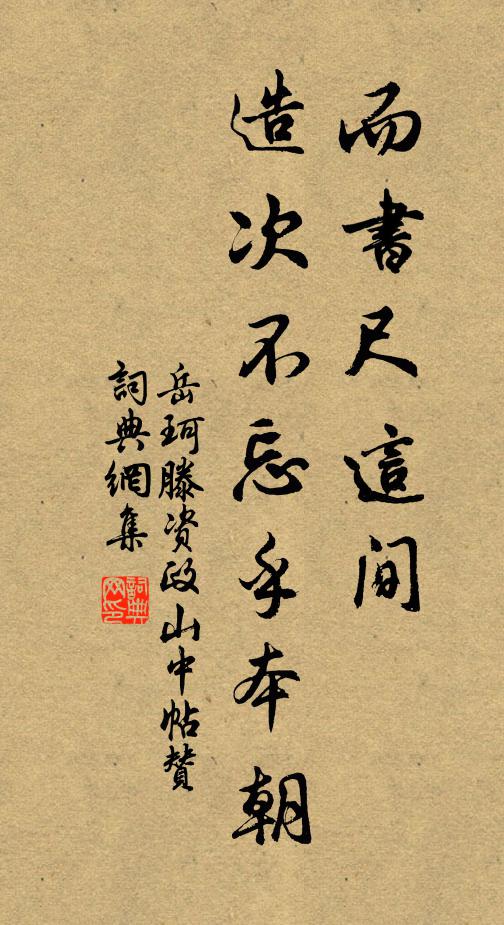 而書尺這間
造次不忘乎本朝
岳珂滕资政山中帖贊
詞典網集
詞典網印